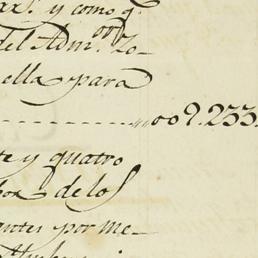 y como q.
del Adm.^or Zo-
ella para
009.233.
te y quatro
de los
antes por me-